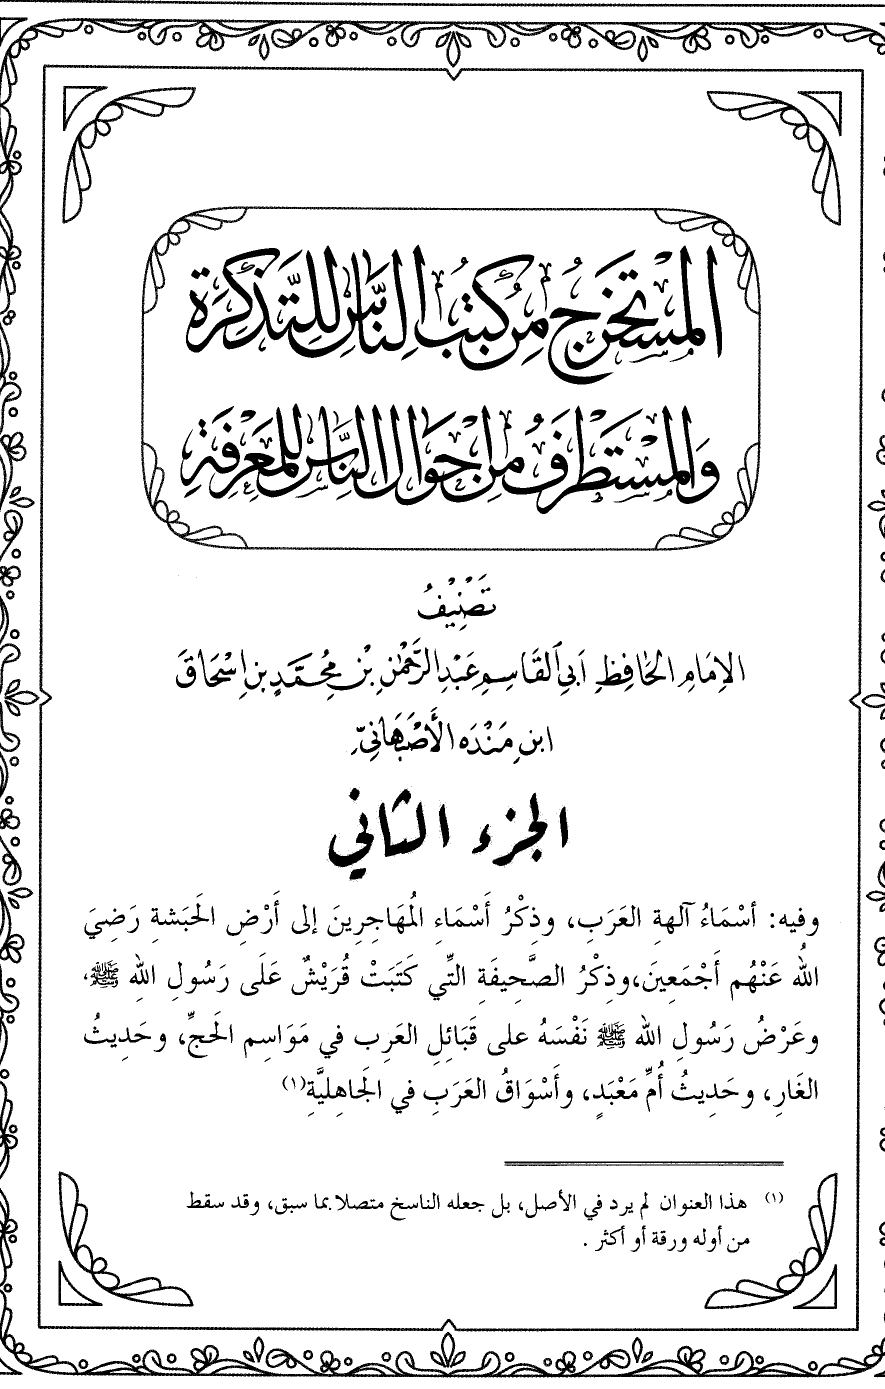 المُسْتَخْرَجُ مِنْ كُتُبِ النَّاسِ لِلتَّذْكِرَةِ
وَالمُسْتَطْرَفُ مِنْ أَحْوَالِ النَّاسِ لِلْمَعْرِفَةِ
تَصْنِيْفُ
الإِمَامِ الحَافِظِ أَبِي القَاسِمِ عَبْدِ الرَّحْمٰنِ بْنِ مُحَمَّدِ بنِ إِسْحَاقَ
ابنِ مَنْدَه الأَصْبَهَانِيِّ
الجزء الثاني
وفيه: أَسْمَاءُ آلهةِ العَرَبِ، وذِكْرُ أَسْمَاءِ المُهَاجِرِينَ إلى أَرْضِ الحَبَشةِ رَضِيَ
اللهُ عَنْهُم أَجْمَعِينَ،وذِكْرُ الصَّحِيفَةِ التِّي كَتَبَتْ قُرَيْشٌ عَلَى رَسُولِ اللهِ ﷺ،
وعَرْضُ رَسُولِ الله ﷺ نَفْسَهُ على قَبَائِلِ العَرِب في مَوَاسِم الحَجِّ، وحَدِيثُ
الغَارِ، وحَدِيثُ أُمِّ مَعْبَدٍ، وأَسْوَاقُ العَرَبِ في الجَاهِليَّةِ(١)
(١) هذا العنوان لم يرد في الأصل، بل جعله الناسخ متصلا بما سبق، وقد سقط
من أوله ورقة أو أكثر .